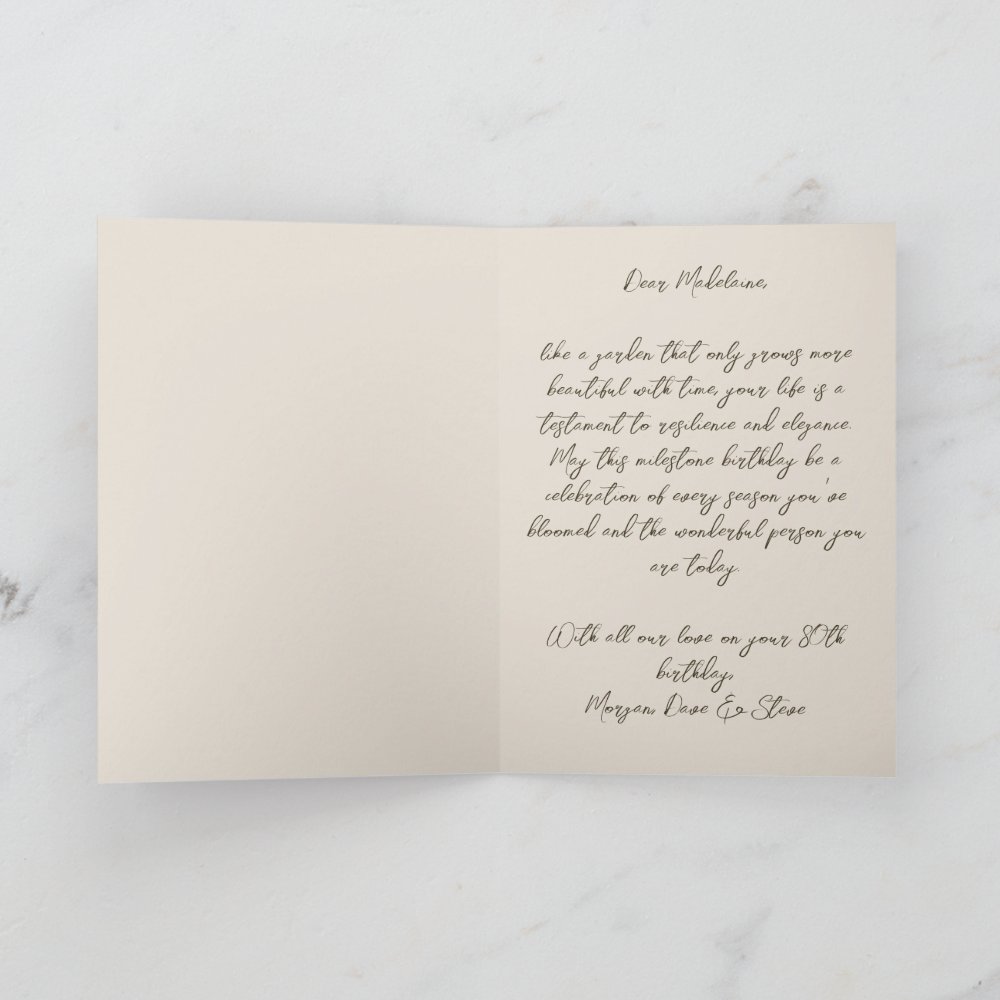 Dear Madelaine,
like a garden that only grows more
beautiful with time, your life is a
testament to resilience and elegance.
May this milestone birthday be a
celebration of every season you've
bloomed and the wonderful person you
are today.
With all our love on your 80th
birthday,
Morgan, Dave & Steve